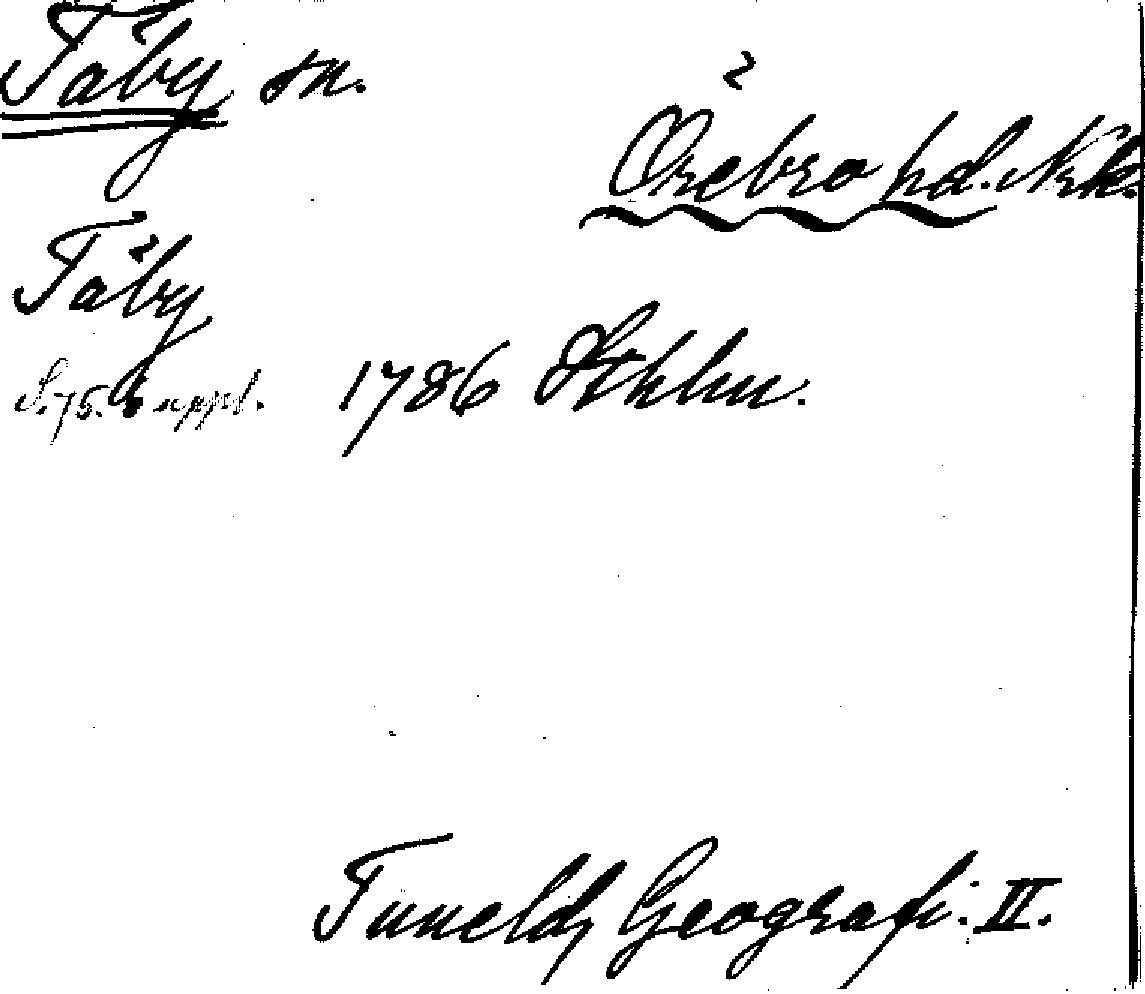 Täby sn.
Örebro hd. Nrk.
Täby
S. 75. 6 uppl. 1786 Sthlm.
Tunelds Geografi. II.